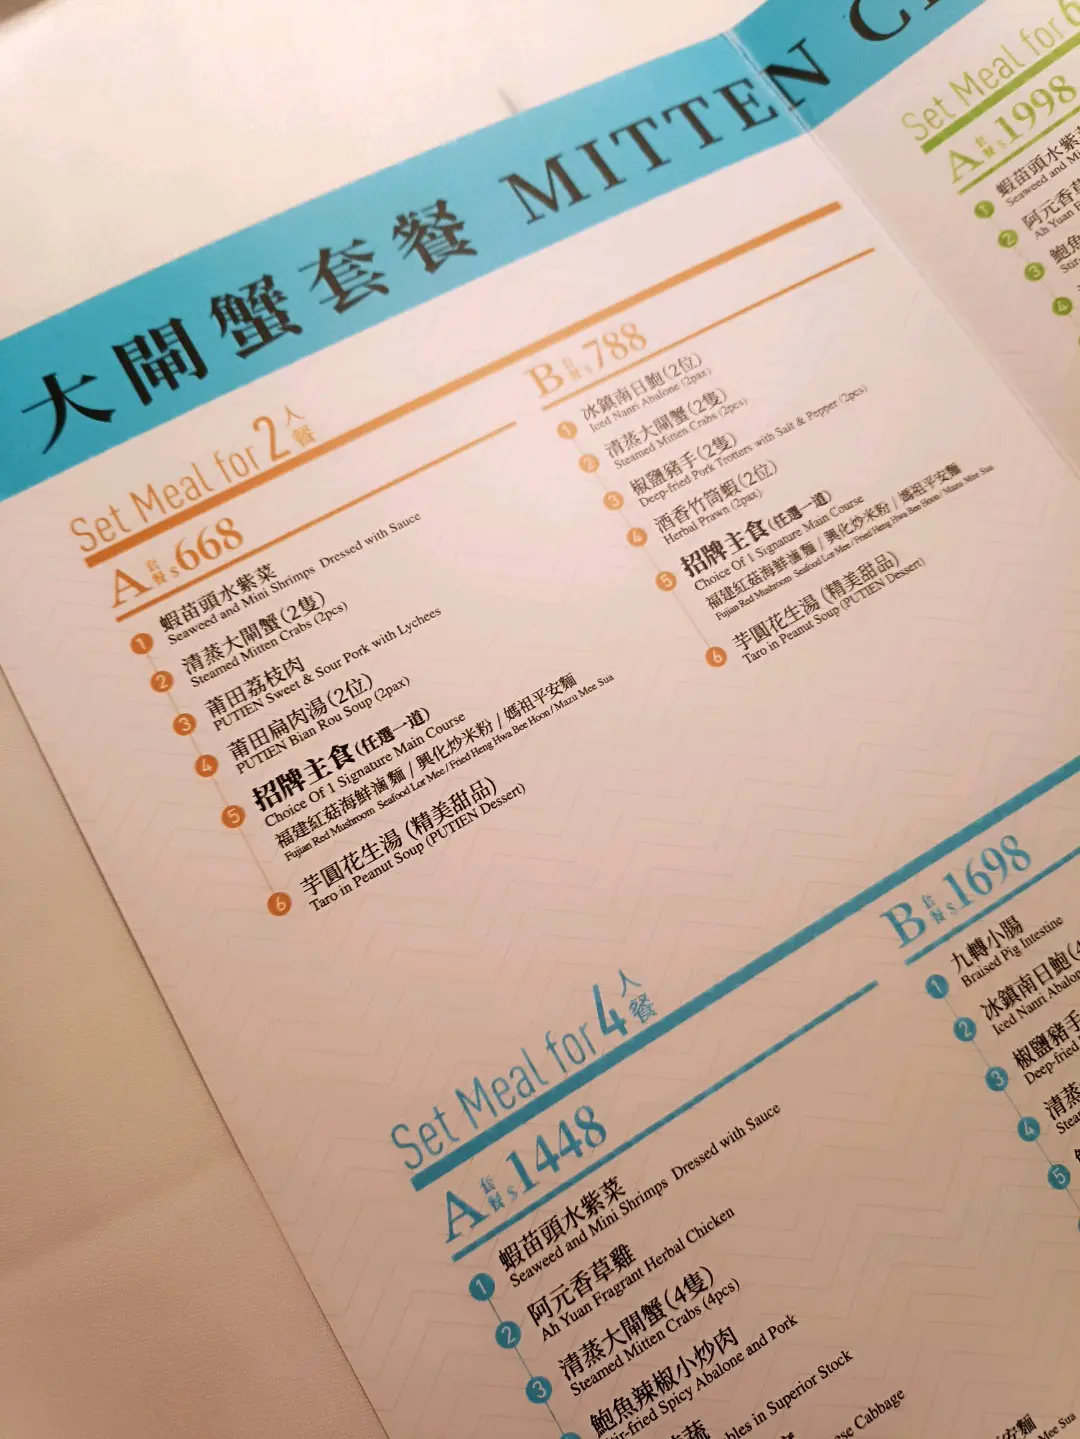 大閘蟹套餐 MITTEN
Set Meal for 2 人餐
A 套餐 $668
1 蝦苗頭水紫菜
Seaweed and Mini Shrimps Dressed with Sauce
2 清蒸大閘蟹(2隻)
Steamed Mitten Crabs (2pcs)
3 莆田荔枝肉
PUTIEN Sweet & Sour Pork with Lychees
4 莆田扁肉湯(2位)
PUTIEN Bian Rou Soup (2pax)
5 招牌主食(任選一道)
Choice Of 1 Signature Main Course
福建紅菇海鮮滷麵 / 興化炒米粉 / 媽祖平安麵
Fujian Red Mushroom Seafood Lor Mee / Fried Heng Hwa Bee Hoon / Mazu Mee Sua
6 芋圓花生湯 (精美甜品)
Taro in Peanut Soup (PUTIEN Dessert)
B 套餐 $788
1 冰鎮南日鮑(2位)
Iced Nanri Abalone (2pax)
2 清蒸大閘蟹(2隻)
Steamed Mitten Crabs (2pcs)
3 椒鹽豬手(2隻)
Deep-fried Pork Trotters with Salt & Pepper (2pcs)
4 酒香竹筒蝦(2位)
Herbal Prawn (2pax)
5 招牌主食(任選一道)
Choice Of 1 Signature Main Course
福建紅菇海鮮滷麵 / 興化炒米粉 / 媽祖平安麵
Fujian Red Mushroom Seafood Lor Mee / Fried Heng Hwa Bee Hoon / Mazu Mee Sua
6 芋圓花生湯 (精美甜品)
Taro in Peanut Soup (PUTIEN Dessert)
Set Meal for 4 人餐
A 套餐 $1448
1 蝦苗頭水紫菜
Seaweed and Mini Shrimps Dressed with Sauce
2 阿元香草雞
Ah Yuan Fragrant Herbal Chicken
3 清蒸大閘蟹(4隻)
Steamed Mitten Crabs (4pcs)
鮑魚辣椒小炒肉
Stir-fried Spicy Abalone and Pork
in Superior Stock
Cabbage
安麵
Mee Sua
B 套餐 $1698
1 九轉小腸
Braised Pig Intestine
2 冰鎮南日鮑(4
Iced Nanri
3 椒鹽豬手
Deep-fried
4 清蒸
5
Set Meal for 6
A 套餐 $1998
1 蝦苗頭水紫
Seaweed and
2 阿元香
Ah Yuan
3 鮑魚
4